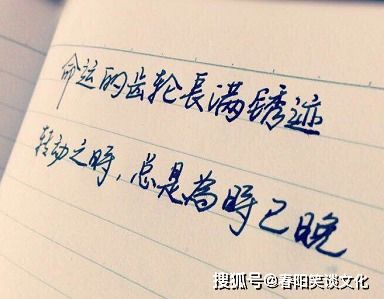 命运的齿轮長满锈迹
转动之時，总是為時已晚
搜狐号@春阳笑谈文化